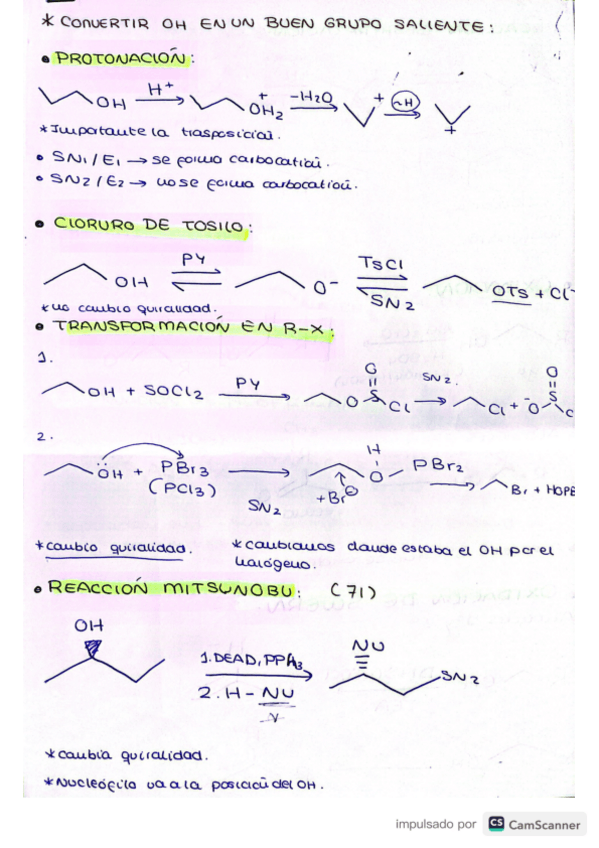 * CONVERTIR OH EN UN BUEN GRUPO SALIENTE:
• PROTONACIÓN:
OH H+ + OH2 -H2O + ~H +
* Importante la trasposición.
• SN1/E1 → se forma carbocatión.
• SN2/E2 → no se forma carbocatión.
• CLORURO DE TOSILO:
OH PY O- TsCl SN2 OTs + Cl-
* no cambio quiralidad.
• TRANSFORMACIÓN EN R-X:
1.
OH + SOCl2 PY O S O Cl SN2. Cl + -O S O C
2.
OH + PBr3 (PCl3) SN2 H O PBr2 +Br⊖ Br + HOPB
* cambio quiralidad. * cambiamos donde estaba el OH por el
halógeno.
• REACCIÓN MITSUNOBU: (71)
OH 1. DEAD, PPh3 NU SN2
2. H-NU
* cambia quiralidad.
* Nucleófilo va a la posición del OH.
impulsado por CS CamScanner